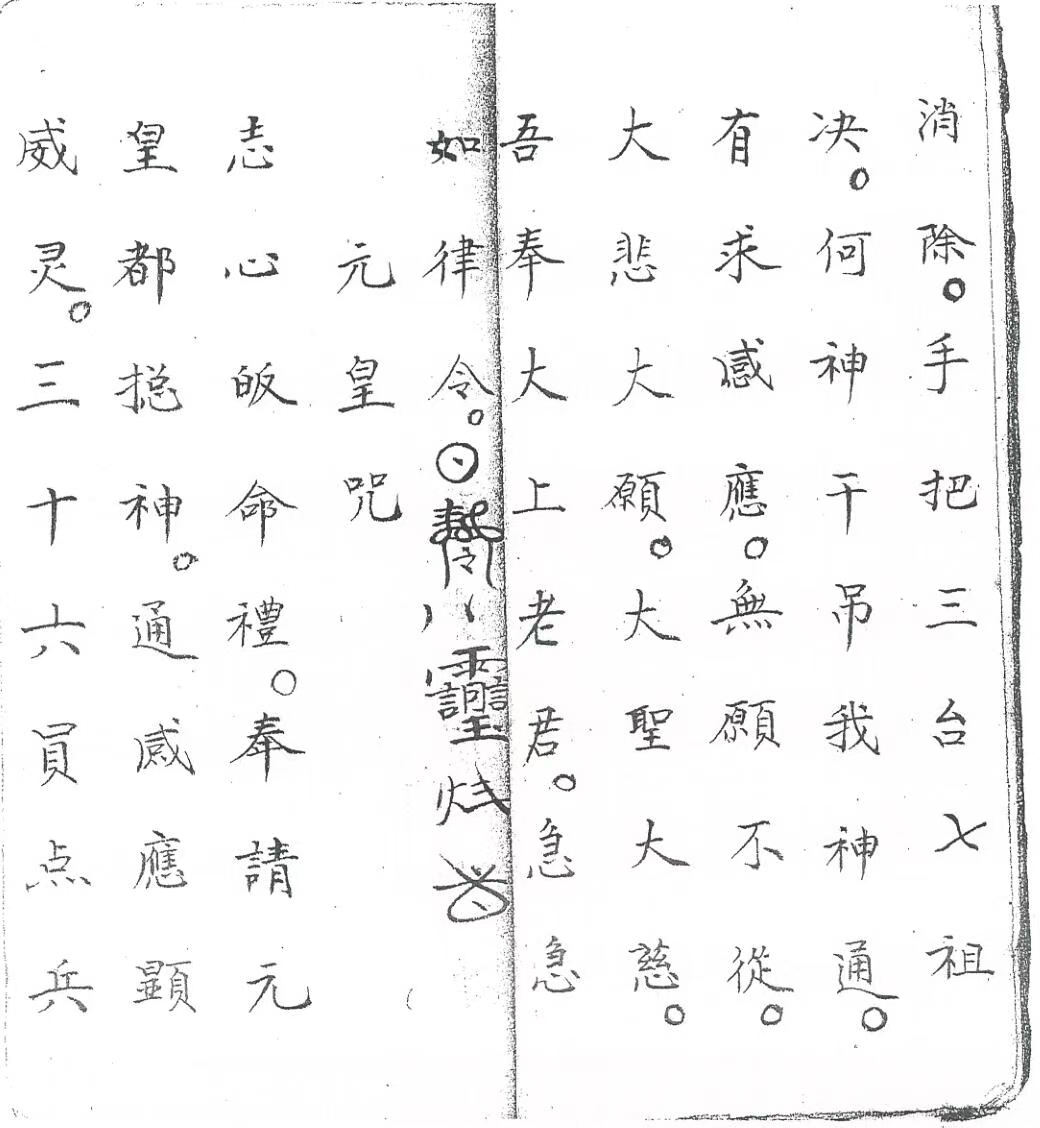 消除。手把三台七祖
决。何神干吊我神通。
有求感應。無願不從。
大悲大願。大聖大慈。
吾奉大上老君。急急
如律令。
元皇咒
志心皈命禮。奉請元
皇都捴神。通感應顯
威灵。三十六員点兵